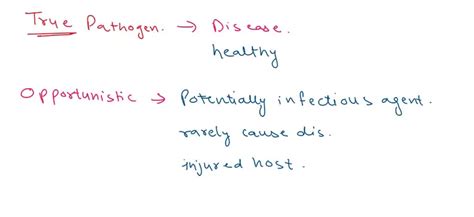 True Pathogen. → Disease.
healthy
Opportunistic → Potentially infectious agent.
rarely cause dis.
injured host.